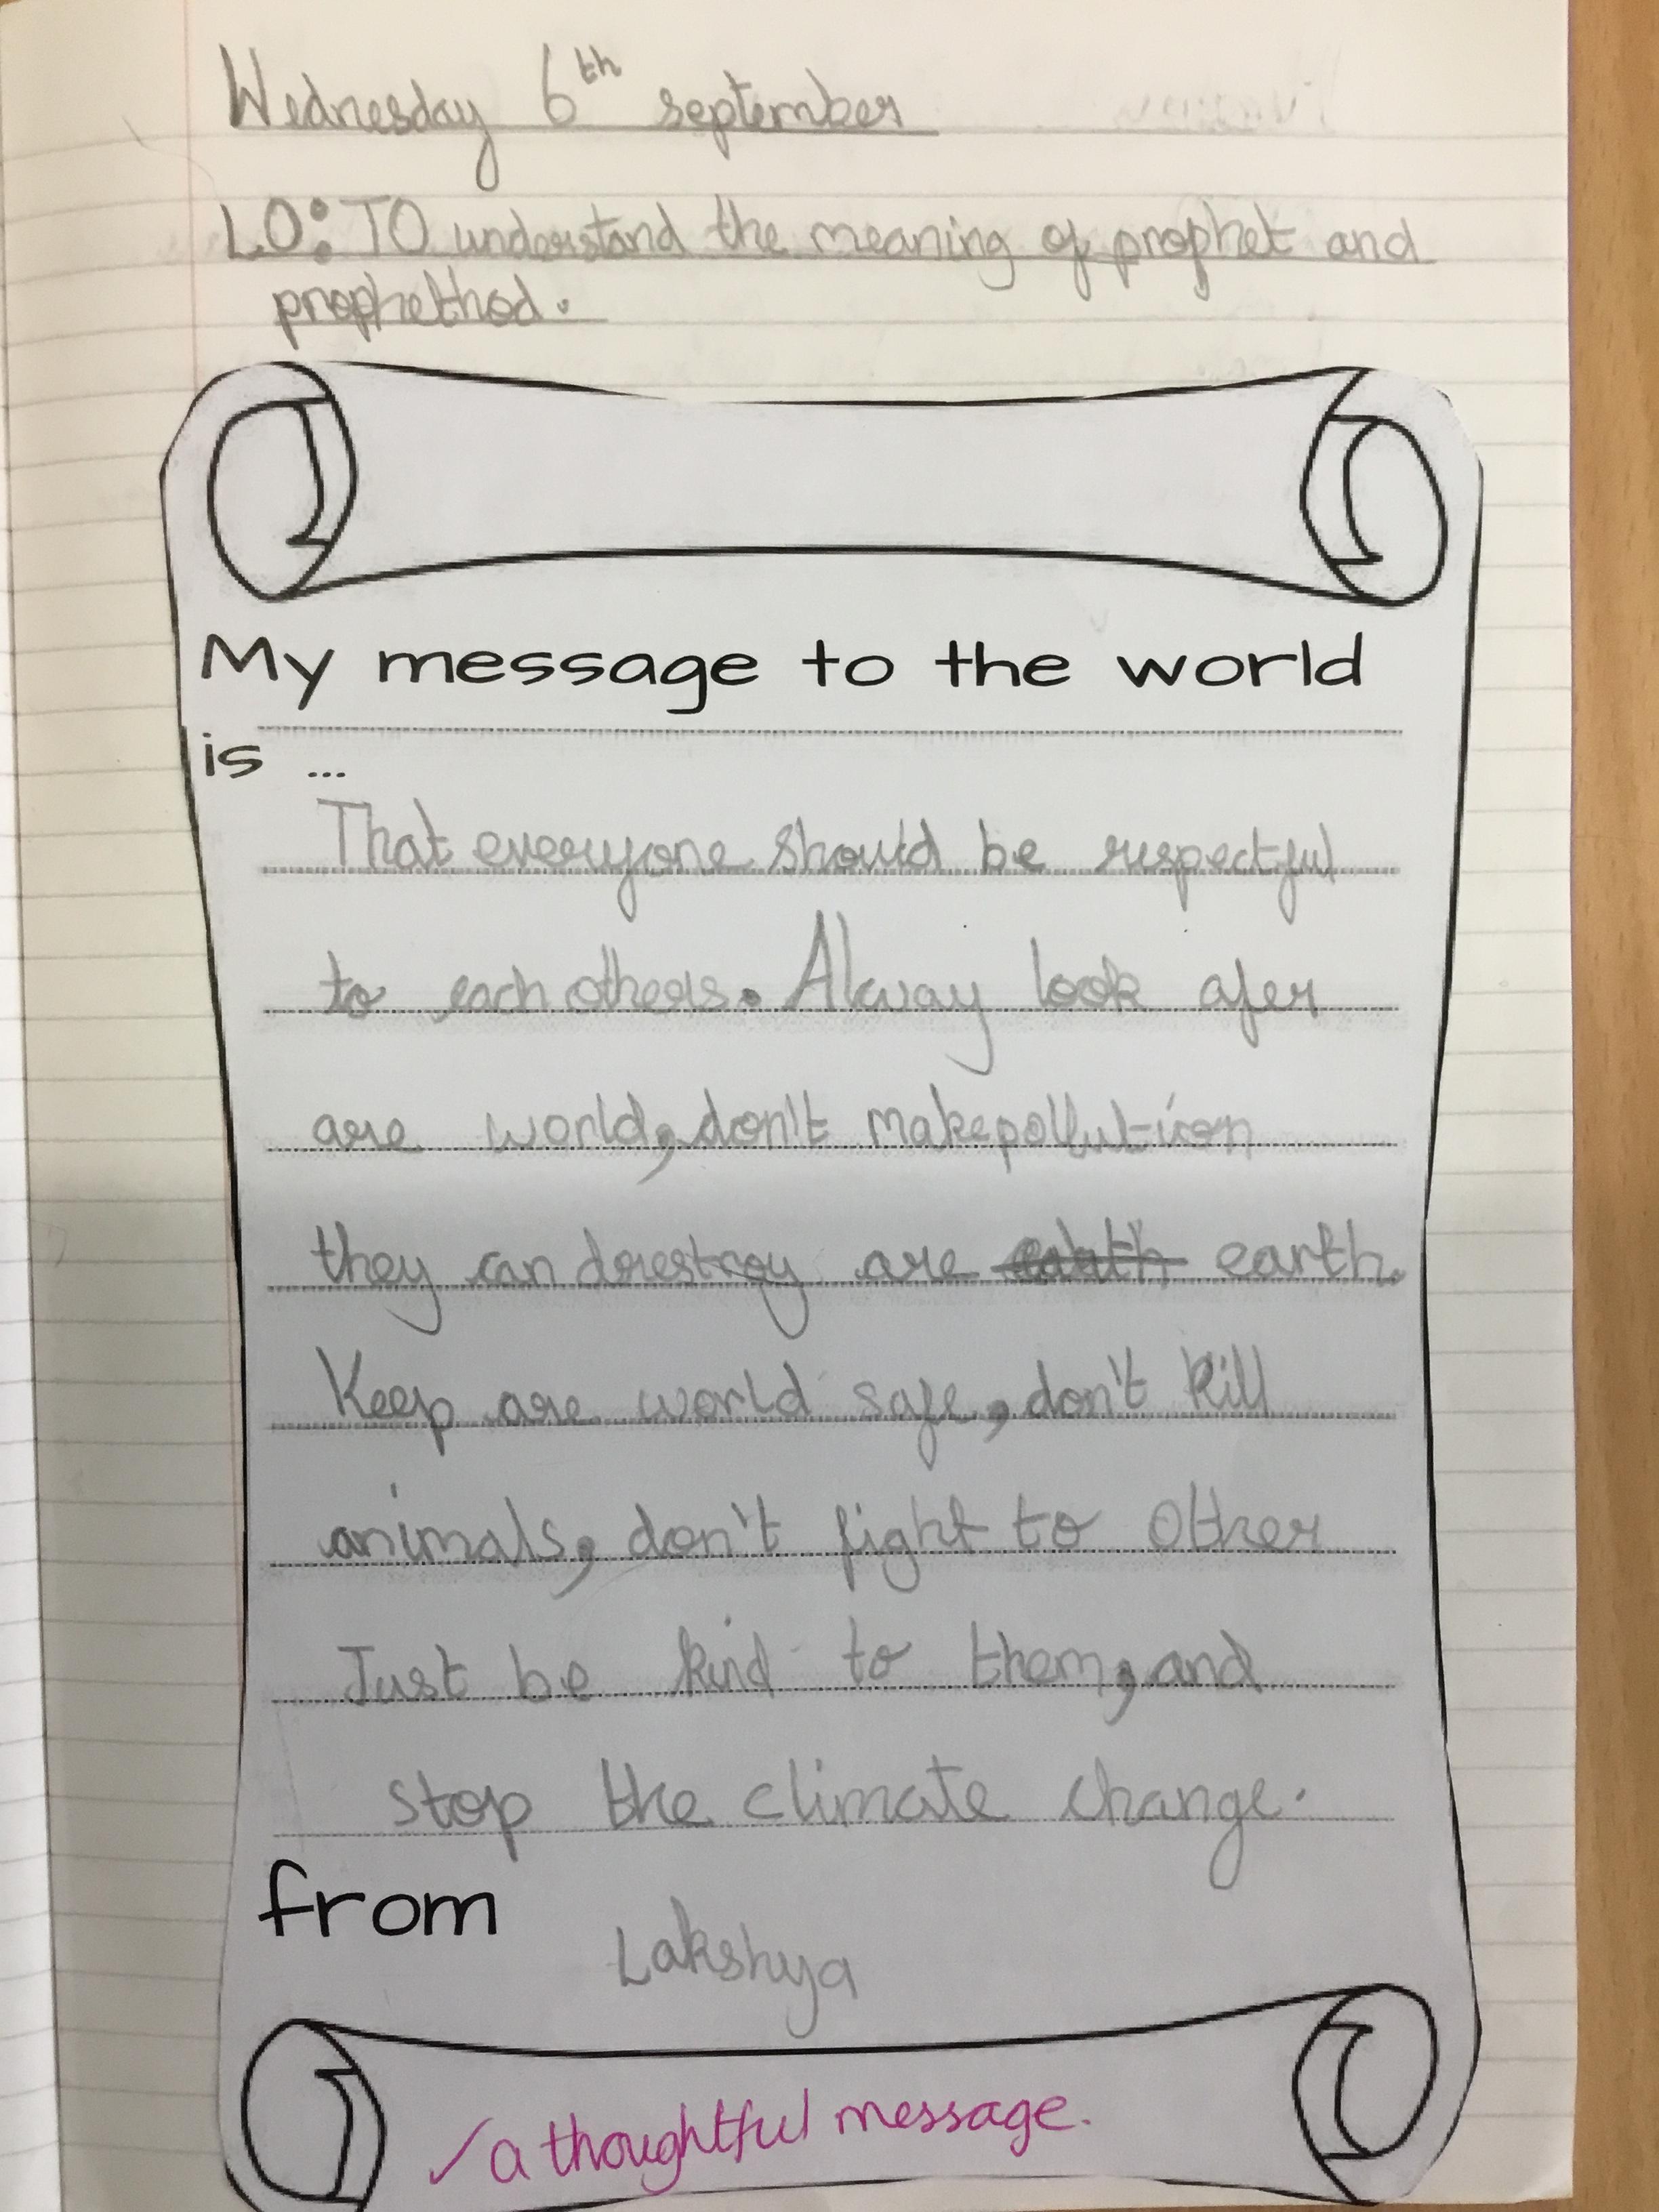 Wednesday 6th september
LO: TO understand the meaning of prophet and
prophethod.
My message to the world
is ...
That everyone should be respectful
to each others. Alway look afer
are world, don't make pollution
they can derestroy are earth.
Keep are world safe, don't kill
animals, don't fight to other
Just be kind to them, and
stop the climate change.
from
Lakshya
✓ a thoughtful message.